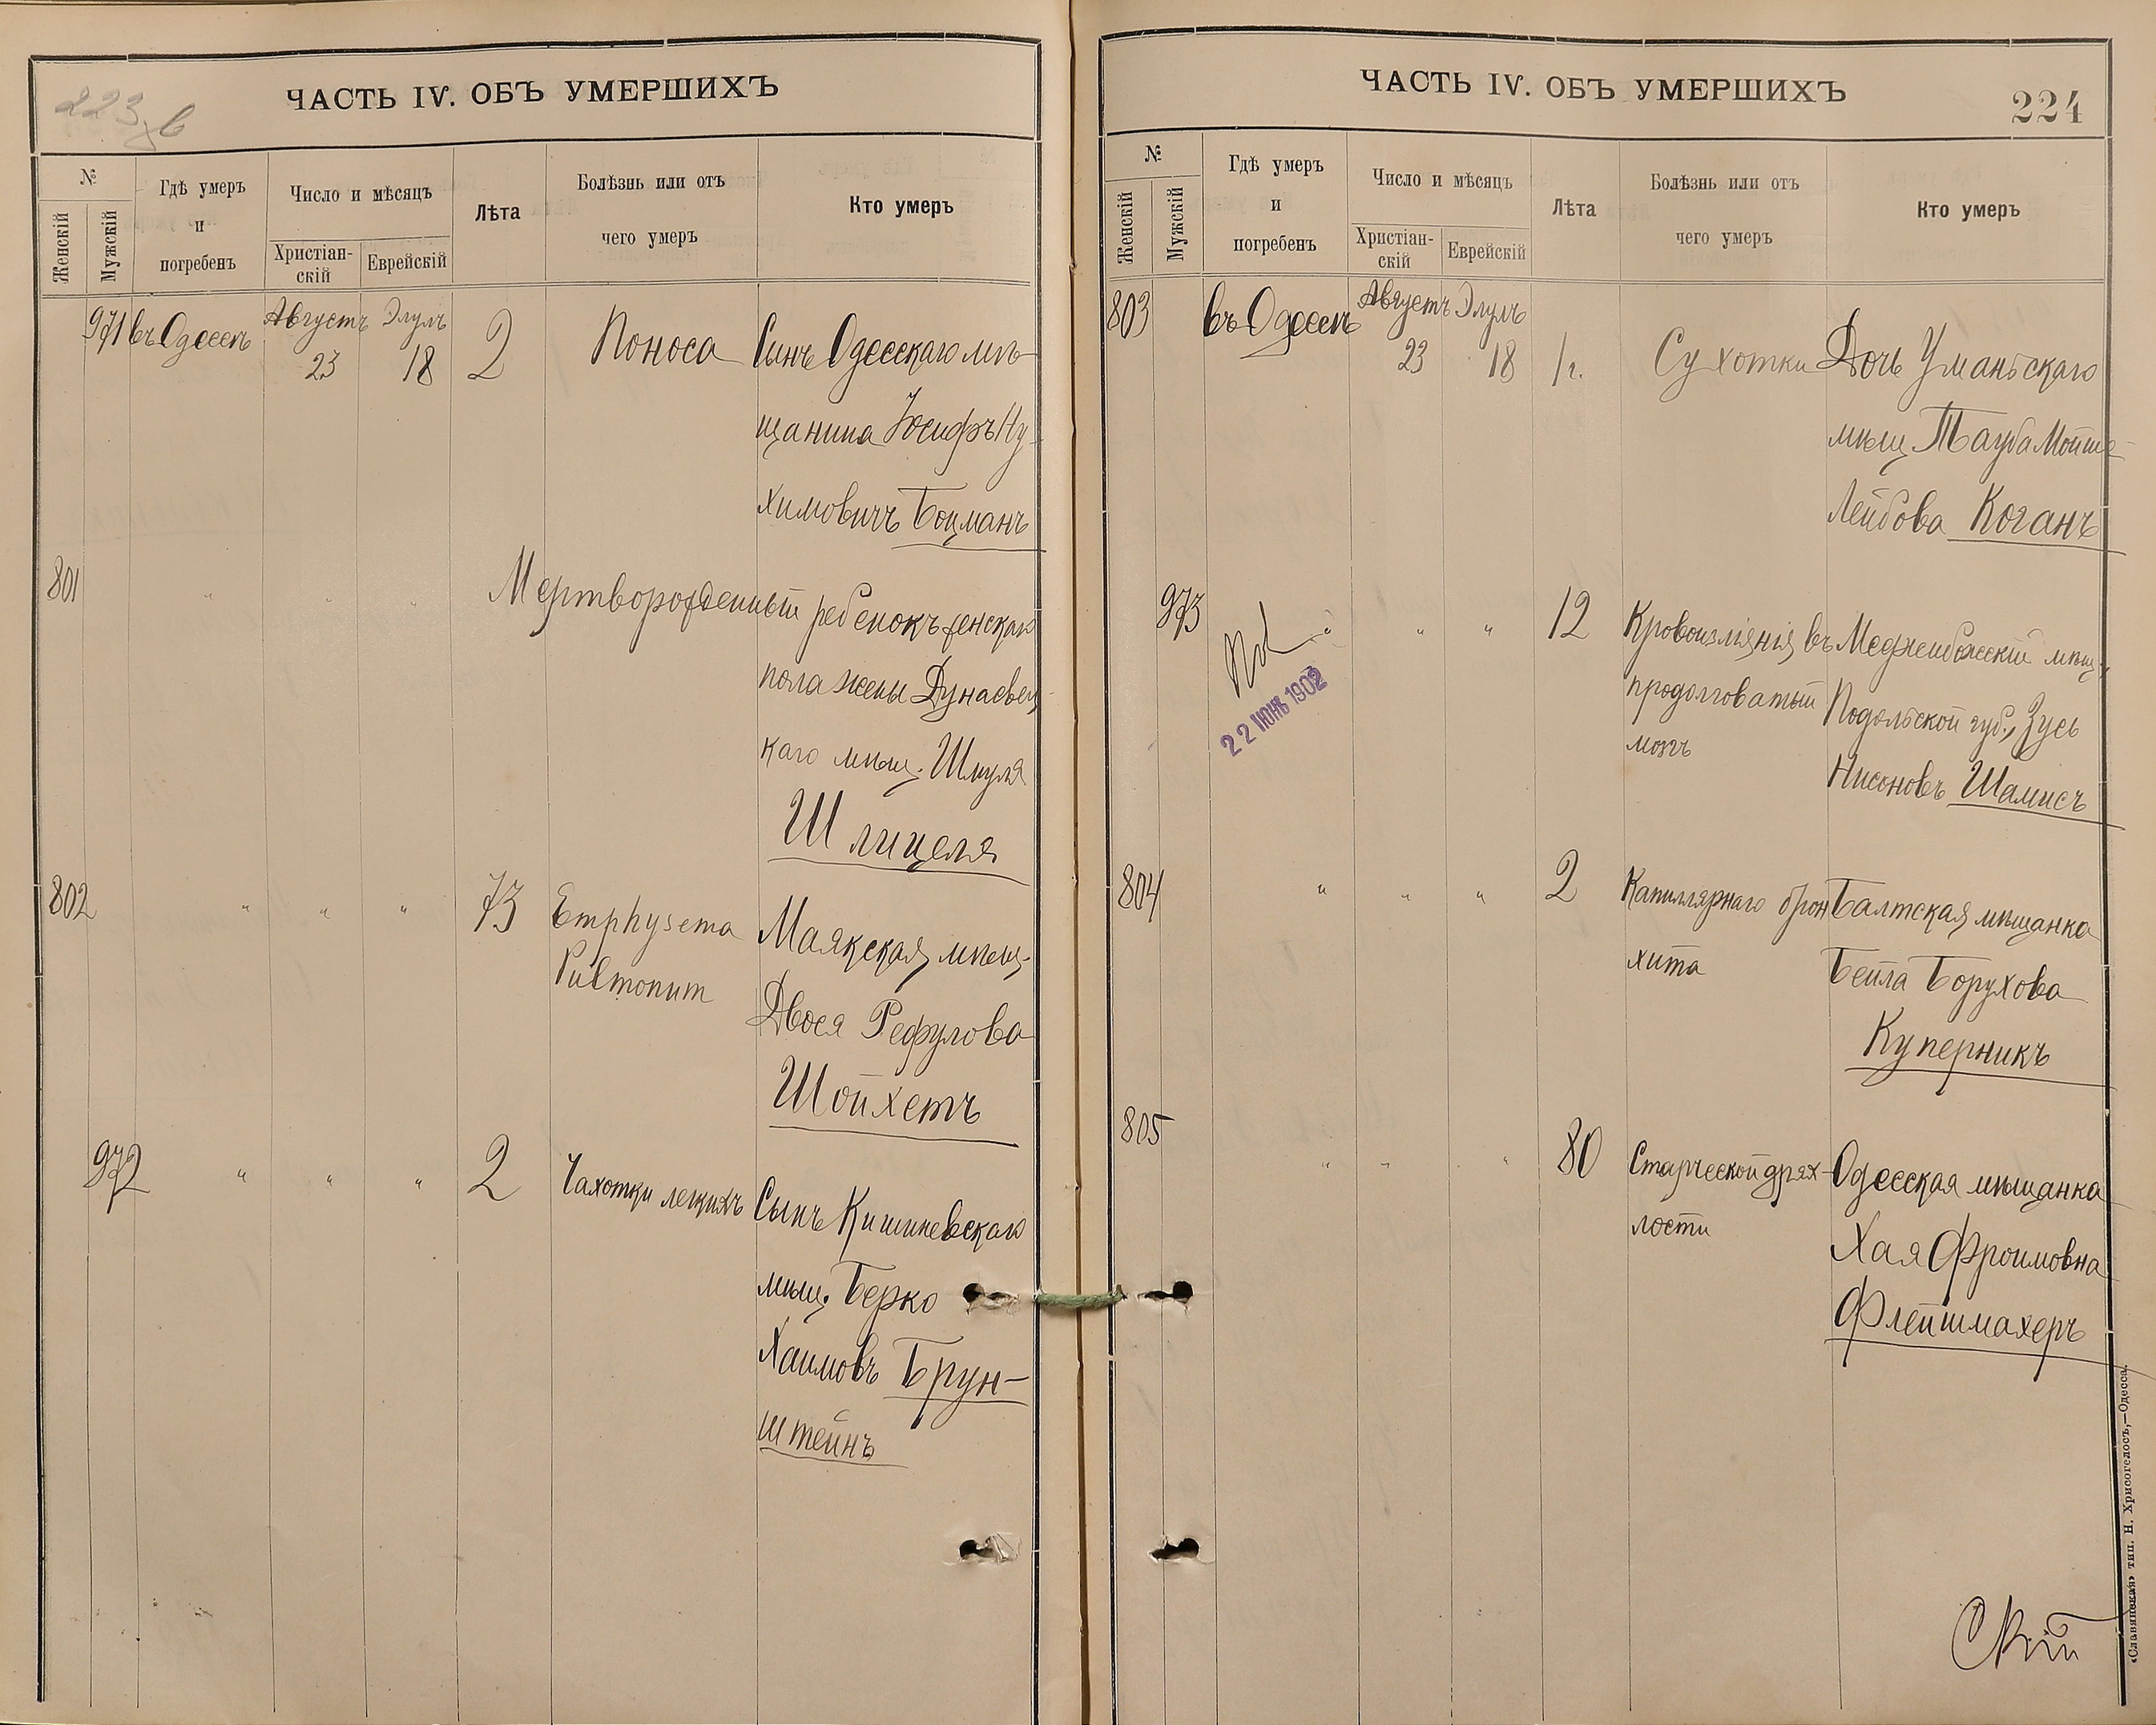 ЧАСТЬ IV. ОБЪ УМЕРШИХЪ
№
Женскій
Мужскій
Гдѣ умеръ
и
погребенъ
Число и мѣсяцъ
Христіан-
скій
Еврейскій
Лѣта
Болѣзнь или отъ
чего умеръ
Кто умеръ
971 въ Одессѣ Августъ Элулъ
23 18 2 Поноса Сынъ Одесскаго мѣ-
щанина Іосифъ Ну-
химовичъ Боцманъ
801 " " " Мертворожденный ребенокъ женскаго
пола жены Дунаевец-
каго мѣщ. Шмуля
Шпицеля
802 " " " 73 Emphysema Маякская мѣщ.
Pulmonum
Двося Рефулова
Шойхетъ
972 " " " 2 Чахотки легкихъ Сынъ Кишиневскаго
мѣщ. Берко
Хаимовъ Брун-
штейнъ
ЧАСТЬ IV. ОБЪ УМЕРШИХЪ
224
№
Женскій
Мужскій
Гдѣ умеръ
и
погребенъ
Число и мѣсяцъ
Христіан-
скій
Еврейскій
Лѣта
Болѣзнь или отъ
чего умеръ
Кто умеръ
803 въ Одессѣ Августъ Элулъ
23 18 1 г. Сухотки Дочь Уманьскаго
мѣщ Тауба Мойше-
Лейбова Коганъ
973 " " " 12 Кровоизліянія въ Меджибожскій мѣщ.
продолговатый Подольской губ., Зусь
мозгъ
Нисоновъ Шамисъ
22 ІЮН 1902
804 " " " 2 Капиллярнаго брон Балтская мѣщанка
хита Бейла Борухова
Куперникъ
805 " " " 80 Старческой дрях- Одесская мѣщанка
лости
Хая Фроимовна
Флейшмахеръ
«Славянская» тип. Н. Хрисогелосъ,—Одесса.